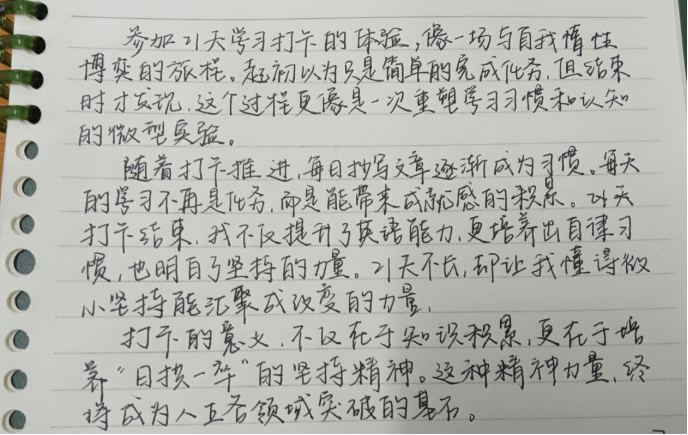 参加21天学习打卡的体验，像一场与自我惰性
博奕的旅程。起初以为只是简单的完成任务，但结束
时才发现，这个过程更像是一次重塑学习习惯和认知
的微型实验。
随着打卡推进，每日抄写文章逐渐成为习惯。每天
的学习不再是任务，而是能带来成就感的积累。21天
打卡结束，我不仅提升了英语能力，更培养出自律习
惯，也明白了坚持的力量。21天不长，却让我懂得微
小坚持能汇聚成改变的力量，
打卡的意义，不仅在于知识积累，更在于培
养“日拱一卒”的坚持精神。这种精神力量，终
将成为人生各领域突破的基石。